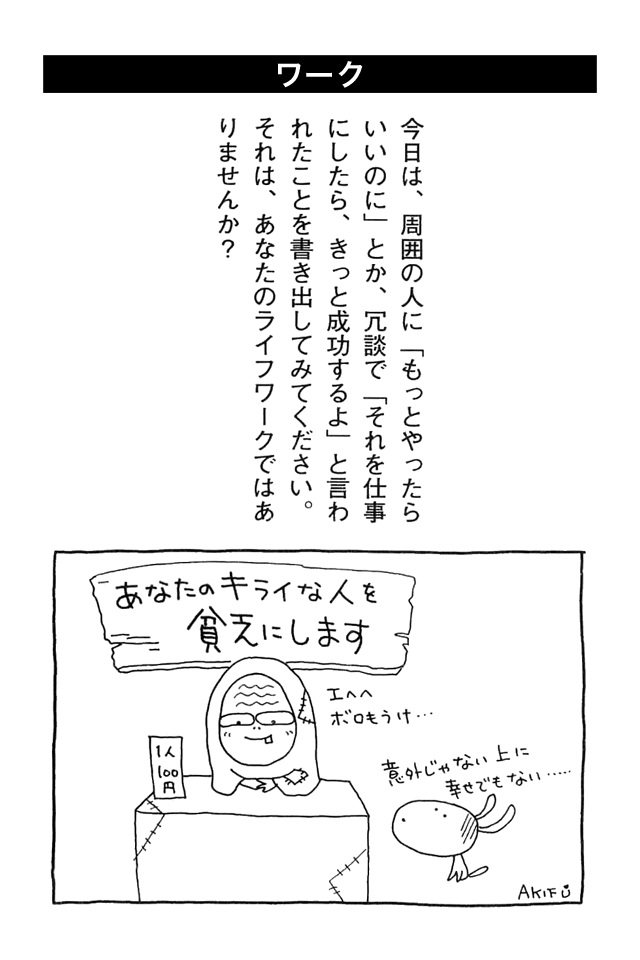 ワーク
今日は、周囲の人に「もっとやったら
いいのに」とか、冗談で「それを仕事
にしたら、きっと成功するよ」と言わ
れたことを書き出してみてください。
それは、あなたのライフワークではあ
りませんか?
あなたのキライな人を
貧乏にします
エヘヘ
ボロもうけ…
1人
100
円
意外じゃない上に
幸せでもない……
AKIFU